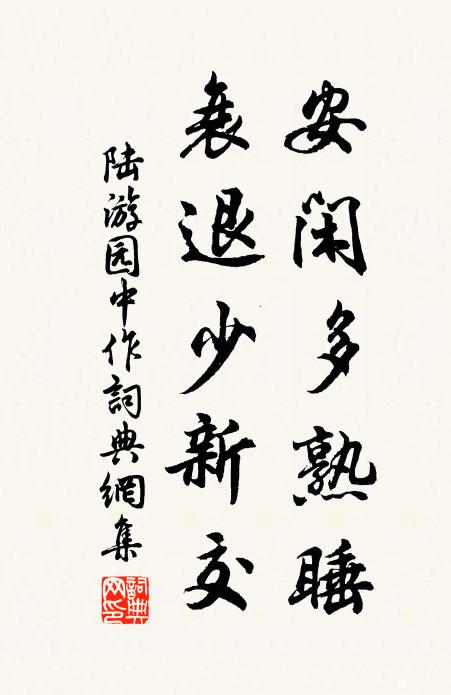 安閑多熟睡
衰退少新交
陆游园中作詞典網集
詞典網印